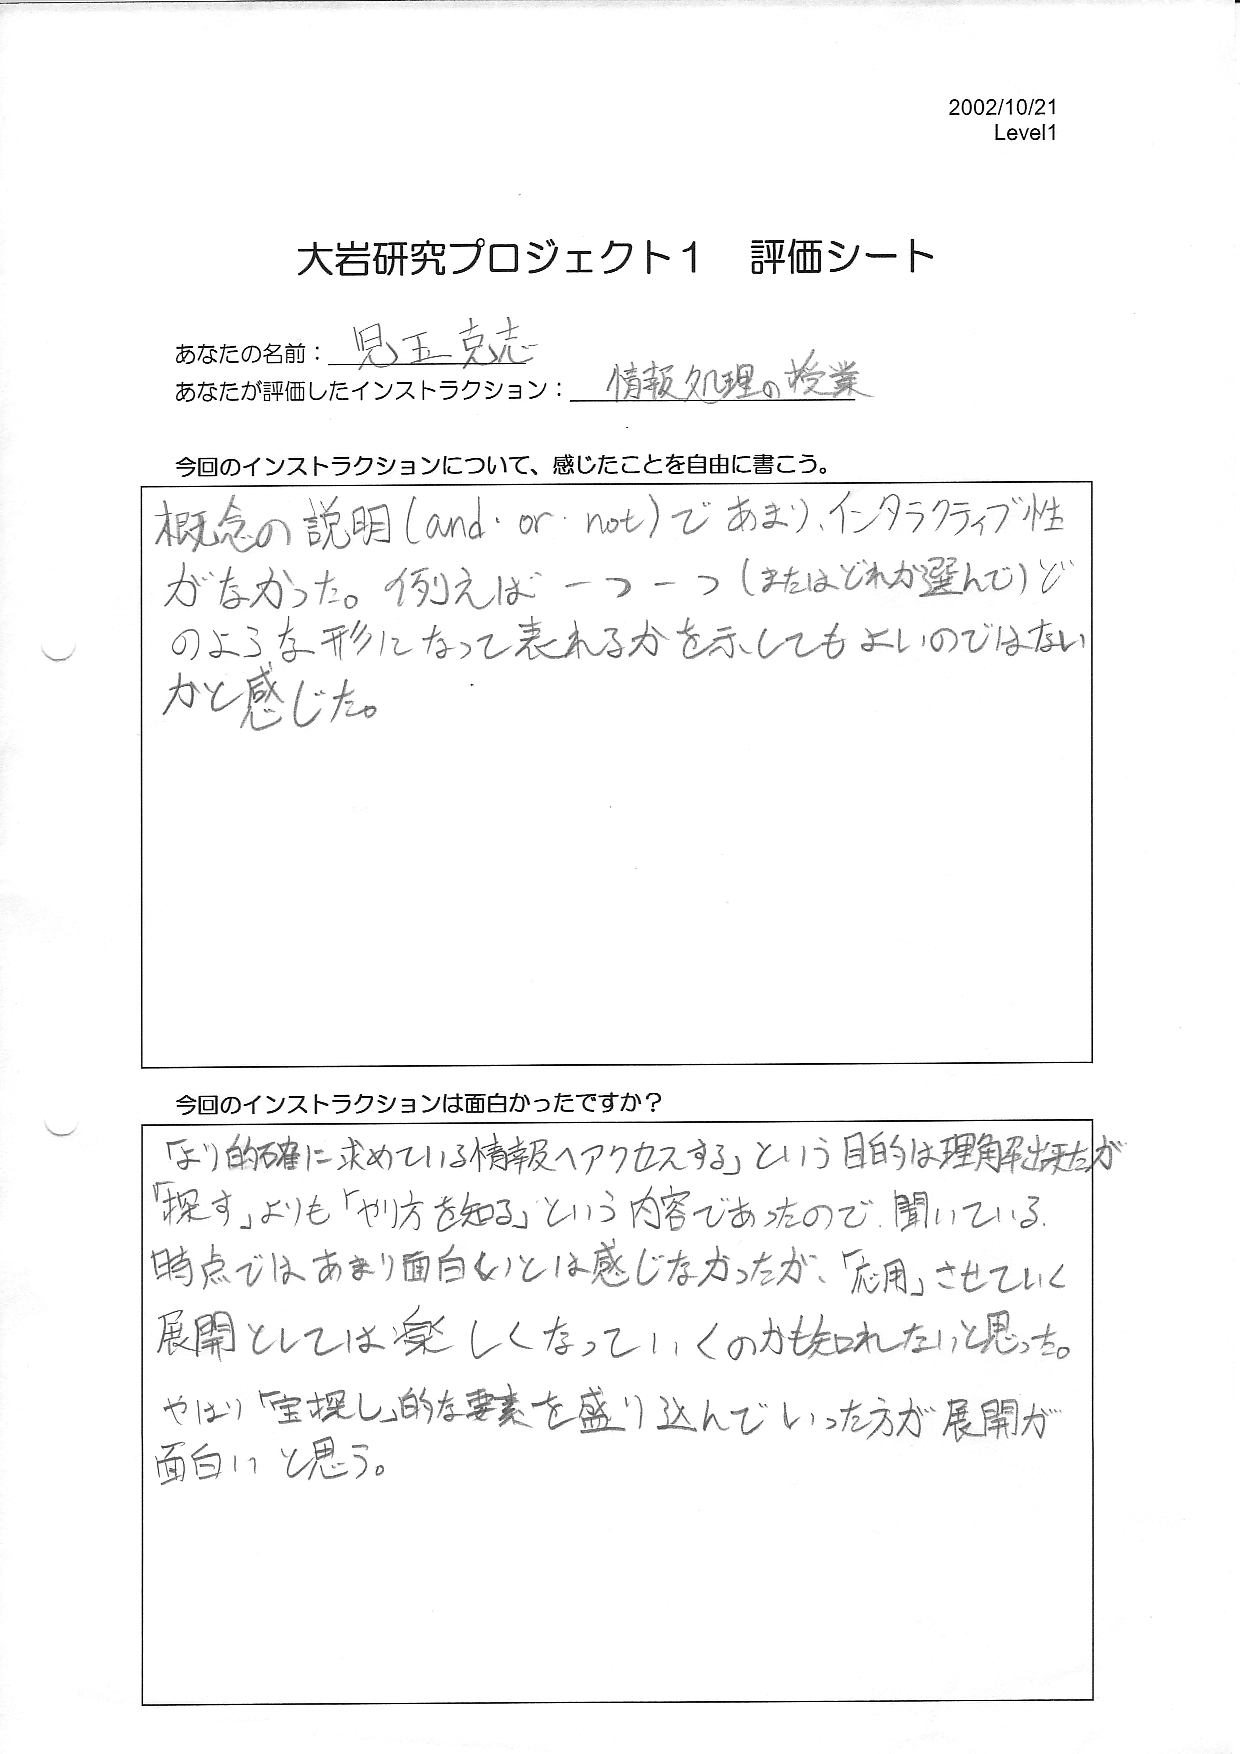 2002/10/21
Level1
大岩研究プロジェクト1 評価シート
あなたの名前：児玉克志
あなたが評価したインストラクション：情報処理の授業
今回のインストラクションについて、感じたことを自由に書こう。
概念の説明(and・or・not)であまり、インタラクティブ性
がなかった。例えば一つ一つ(またはどれか選んで)ど
のような形になって表れるかを示してもよいのではない
かと感じた。
今回のインストラクションは面白かったですか？
「より的確に求めている情報へアクセスする」という目的は理解出来たが
「探す」よりも「やり方を知る」という内容であったので、聞いている
時点ではあまり面白いとは感じなかったが、「応用」させていく
展開としては楽しくなっていくのかも知れないと思った。
やはり「宝探し」的な要素を盛り込んでいった方が展開が
面白いと思う。